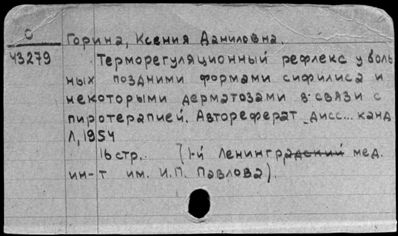 С
Горина, Ксения Даниловна.
43279
Терморегуляционный рефлекс у боль
ных поздними формами сифилиса и
некоторыми дерматозами в связи с
пиротерапией. Автореферат дисс... канд
Л, 1954
16 стр. (1-й Ленинградский мед.
ин-т им. И.П. Павлова).